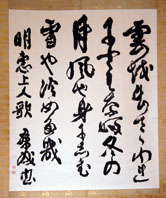 雲を出でてわれ
にともなふ冬の
月風や身にしむ
雪や冷めたき
明恵上人歌 康成書